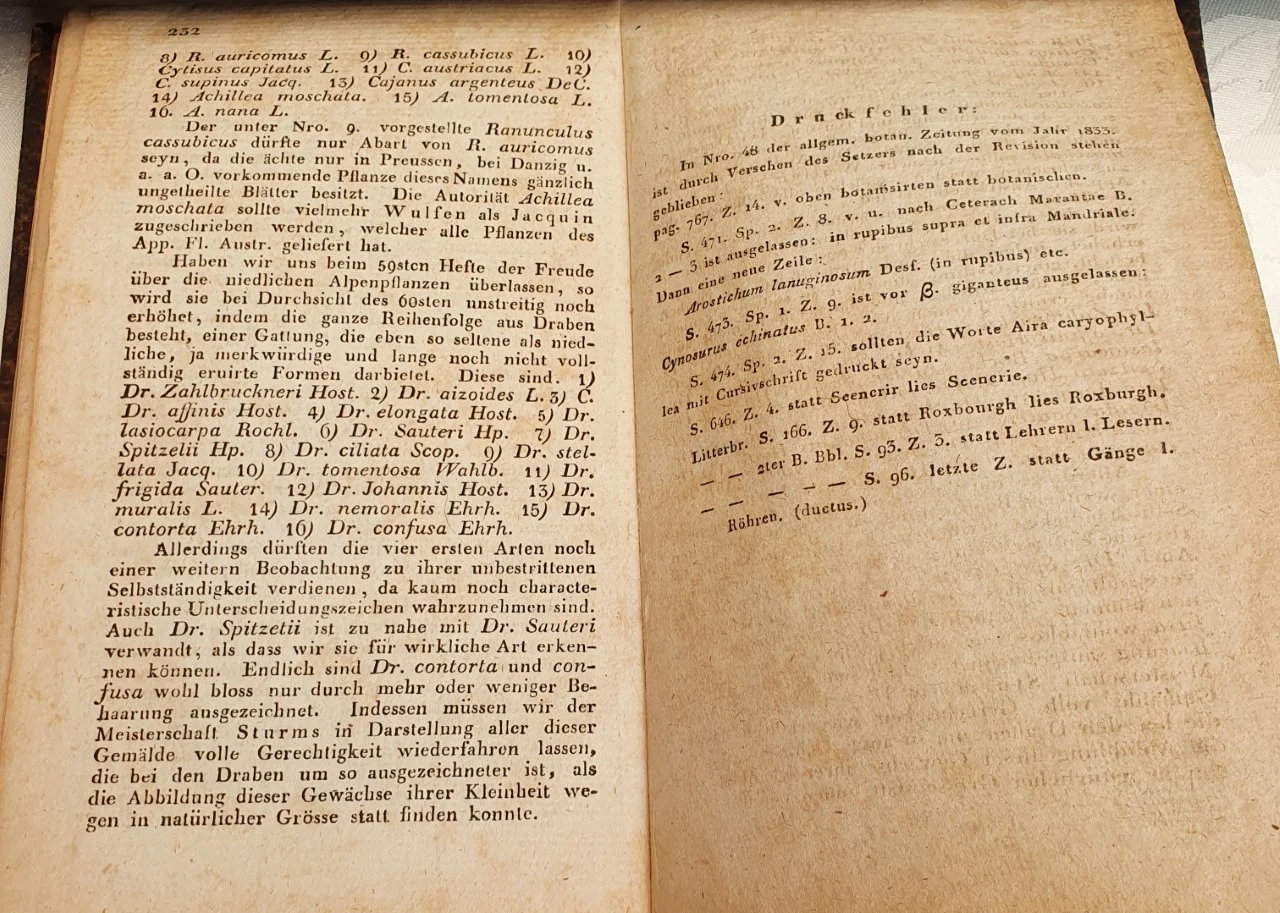 232
8) R. auricomus L. 9) R. cassubicus L. 10)
Cytisus capitatus L. 11) C. austriacus L. 12)
C. supinus Jacq. 13) Cajanus argenteus DeC.
14) Achillea moschata. 15) A. tomentosa L.
16. A. nana L.
Der unter Nro. 9. vorgestellte Ranunculus
cassubicus dürfte nur Abart von R. auricomus
seyn, da die ächte nur in Preussen, bei Danzig u.
a. a. O. vorkommende Pflanze dieses Namens gänzlich
ungetheilte Blätter besitzt. Die Autorität Achillea
moschata sollte vielmehr Wulfen als Jacquin
zugeschrieben werden, welcher alle Pflanzen des
App. Fl. Austr. geliefert hat.
Haben wir uns beim 59sten Hefte der Freude
über die niedlichen Alpenpflanzen überlassen, so
wird sie bei Durchsicht des 60sten unstreitig noch
erhöhet, indem die ganze Reihenfolge aus Draben
besteht, einer Gattung, die eben so seltene als nied-
liche, ja merkwürdige und lange noch nicht voll-
ständig eruirte Formen darbietet. Diese sind. 1)
Dr. Zahlbruckneri Host. 2) Dr. aizoides L. 3) C.
Dr. affinis Host. 4) Dr. elongata Host. 5) Dr.
lasiocarpa Rochl. 6) Dr. Sauteri Hp. 7) Dr.
Spitzelii Hp. 8) Dr. ciliata Scop. 9) Dr. stel-
lata Jacq. 10) Dr. tomentosa Wahlb. 11) Dr.
frigida Sauter. 12) Dr. Johannis Host. 13) Dr.
muralis L. 14) Dr. nemoralis Ehrh. 15) Dr.
contorta Ehrh. 16) Dr. confusa Ehrh.
Allerdings dürften die vier ersten Arten noch
einer weitern Beobachtung zu ihrer unbestrittenen
Selbstständigkeit verdienen, da kaum noch characte-
ristische Unterscheidungszeichen wahrzunehmen sind.
Auch Dr. Spitzetii ist zu nahe mit Dr. Sauteri
verwandt, als dass wir sie für wirkliche Art erken-
nen können. Endlich sind Dr. contorta und con-
fusa wohl bloss nur durch mehr oder weniger Be-
haarung ausgezeichnet. Indessen müssen wir der
Meisterschaft Sturms in Darstellung aller dieser
Gemälde volle Gerechtigkeit wiederfahren lassen,
die bei den Draben um so ausgezeichneter ist, als
die Abbildung dieser Gewächse ihrer Kleinheit we-
gen in natürlicher Grösse statt finden konnte.
Druckfehler:
In Nro. 48 der allgem. botan. Zeitung vom Jahr 1833.
ist durch Versehen des Setzers nach der Revision stehen
geblieben:
pag. 767. Z. 14. v. oben botanisirten statt botanischen.
S. 471. Sp. 2. Z. 8. v. u. nach Ceterach Marantae B.
2 — 3 ist ausgelassen: in rupibus supra et infra Mandriale.
Dann eine neue Zeile:
Arostichum lanuginosum Desf. (in rupibus) etc.
S. 473. Sp. 1. Z. 9. ist vor β. giganteus ausgelassen:
Cynosurus echinatus B. 1. 2.
S. 474. Sp. 2. Z. 15. sollten die Worte Aira caryophyl-
lea mit Cursivschrift gedruckt seyn.
S. 646. Z. 4. statt Seenerir lies Scenerie.
Litterbr. S. 166. Z. 9. statt Roxbourgh lies Roxburgh.
— — 2ter B. Bbl. S. 93. Z. 3. statt Lehrern l. Lesern.
— — — — — S. 96. letzte Z. statt Gänge l.
Röhren. (ductus.)